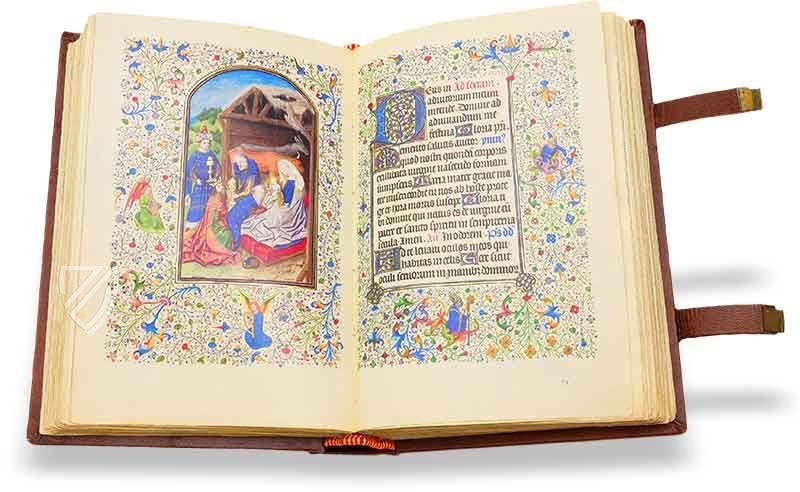 Eus in Ad sextam
adiutorium meum
intende Domine ad
adiuuandum me
festina Gloria pri
Memento salutis auctor ymn9
quod nostri quondam corporis
ex illibata uirgine nascendo formam
sumpseris Maria mater gracie ma
ter misericordie tu nos ab hoste prote
ge et hora mortis suscipe Gloria ti
bi domine qui natus es de uirgine cum
patre et sancto spiritu in sempiterna
secula Amen An In odorem Ps dd
Ad te leuaui oculos meos qui
habitas in celis Ecce sicut
oculi seruorum in manibz dominorz